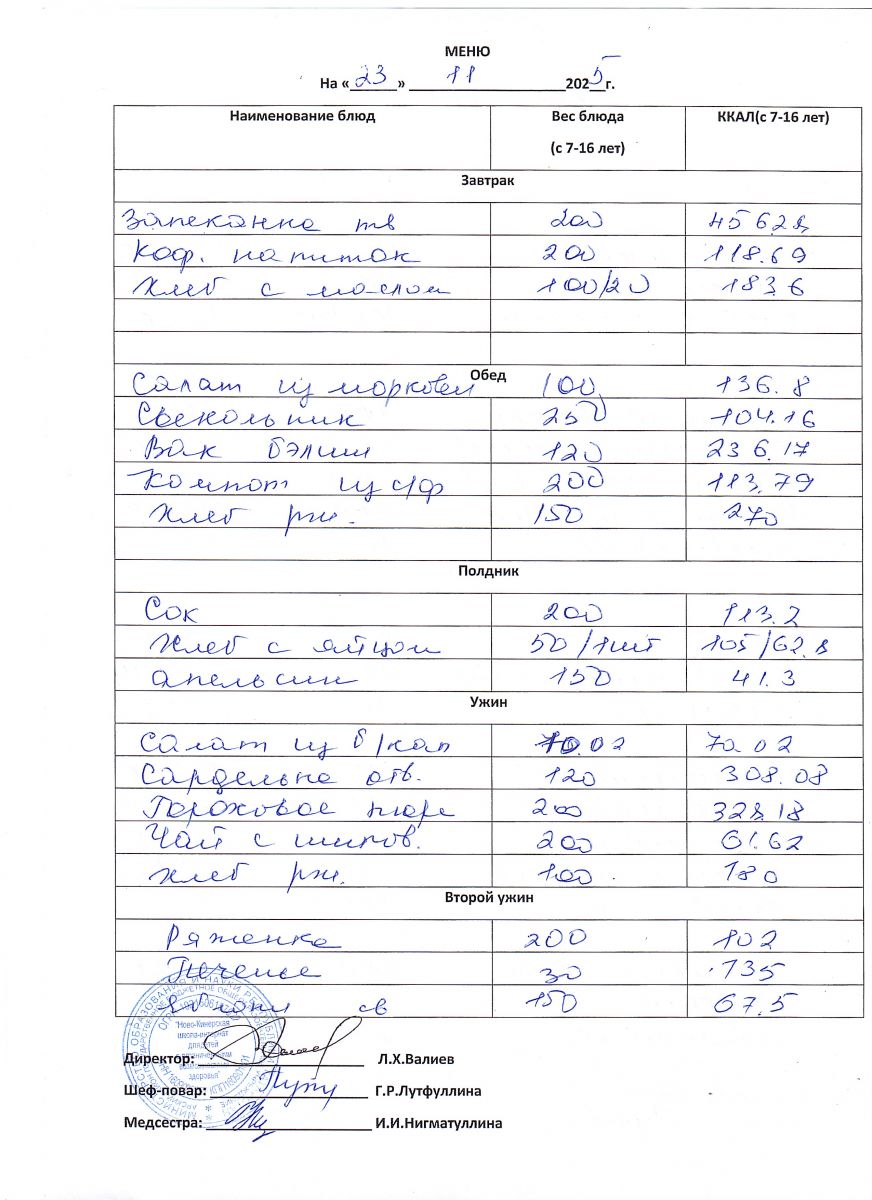 МЕНЮ
На «23» 11 2025 г.
Наименование блюд Вес блюда (с 7-16 лет) ККАЛ(с 7-16 лет)
Завтрак
Запеканка тв 200 456.28
Коф. напиток 200 118.69
Хлеб с маслом 100/20 183.6
Обед
Салат из моркови 100 136.8
Свекольник 250 104.16
Вак бэлиш 120 236.17
Компот из с/ф 200 113.79
Хлеб рж. 150 270
Полдник
Сок 200 113.2
Хлеб с яйцом 50/1шт 105/62.8
апельсин 150 41.3
Ужин
Салат из б/кап 70.02 70.02
Сарделька отв. 120 308.08
Гороховое пюре 200 328.18
Чай с шипов. 200 61.62
хлеб рж. 100 180
Второй ужин
Ряженка 200 102
Печенье 30 135
яблоки св 150 67.5
"Ново-Кинерская
школа-интернат
для детей
с ограниченными
возможностями
здоровья"
Директор: Л.Х.Валиев
Шеф-повар: Г.Р.Лутфуллина
Медсестра: И.И.Нигматуллина